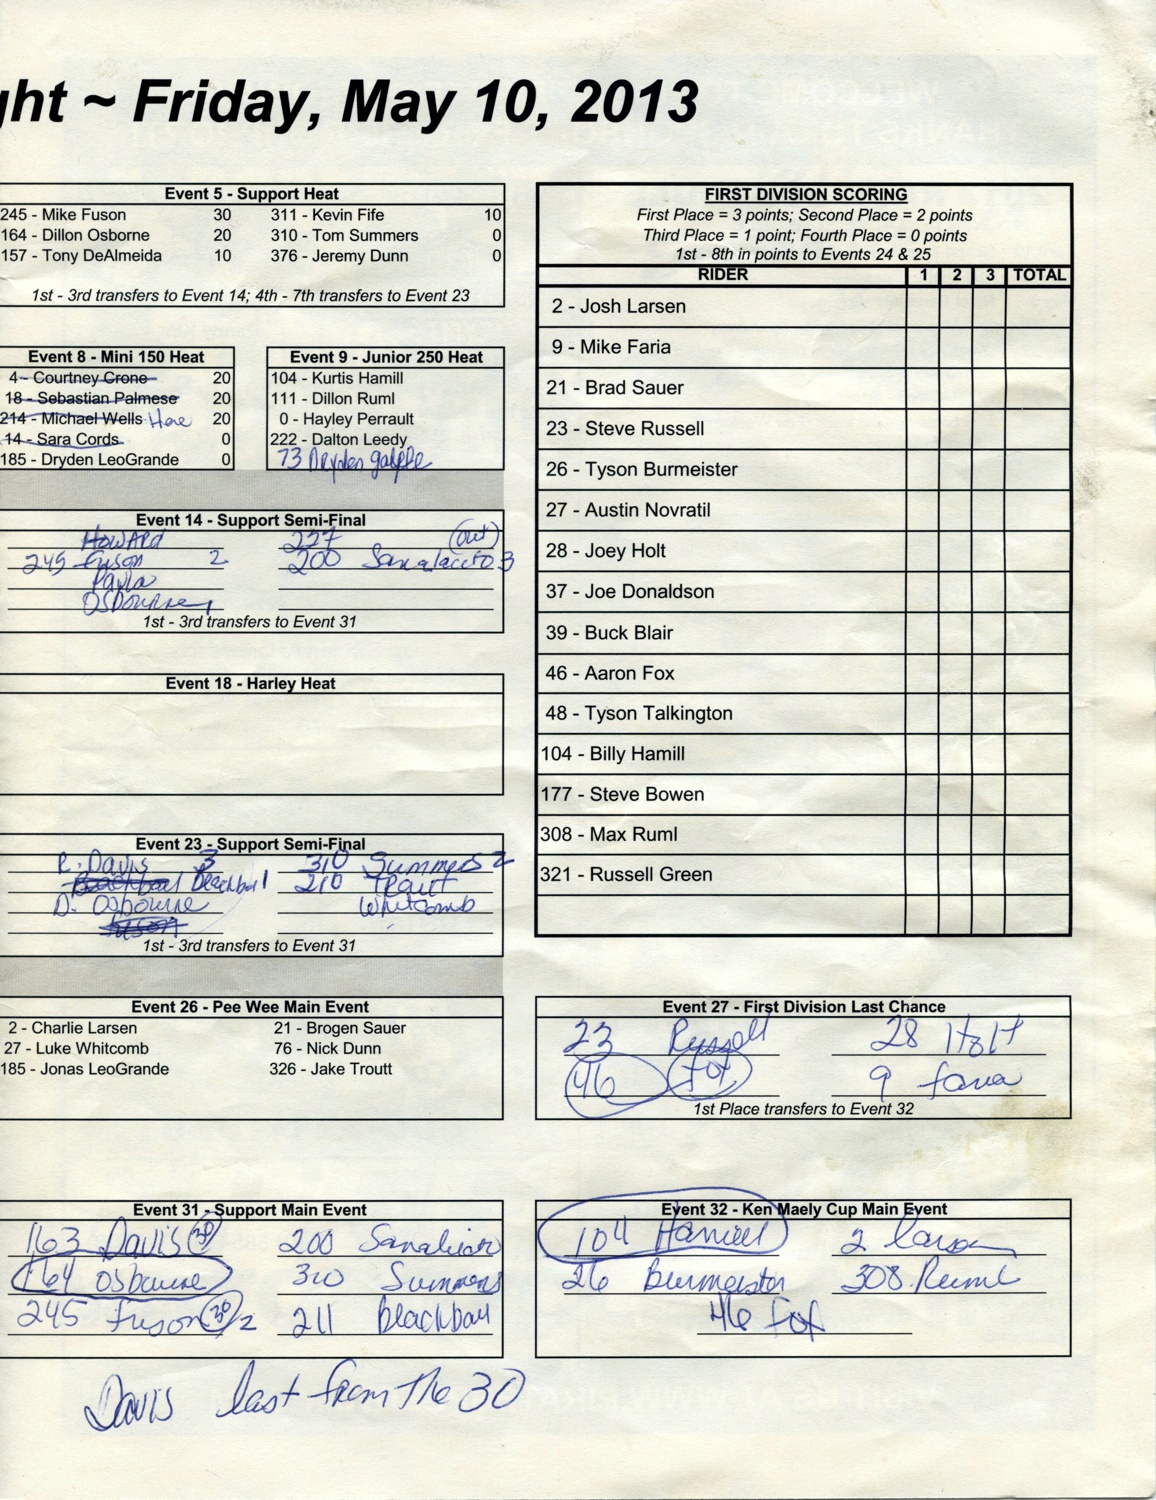 ght ~ Friday, May 10, 2013
Event 5 - Support Heat
245 - Mike Fuson 30 311 - Kevin Fife 10
164 - Dillon Osborne 20 310 - Tom Summers 0
157 - Tony DeAlmeida 10 376 - Jeremy Dunn 0
1st - 3rd transfers to Event 14; 4th - 7th transfers to Event 23
Event 8 - Mini 150 Heat
4 - Courtney Crone 20
18 - Sebastian Palmese 20
214 - Michael Wells Here 20
14 - Sara Cords 0
185 - Dryden LeoGrande 0
Event 9 - Junior 250 Heat
104 - Kurtis Hamill
111 - Dillon Ruml
0 - Hayley Perrault
222 - Dalton Leedy
73
Event 14 - Support Semi-Final
Howard 227 (out)
245 Fuson 2 200 3
Osbourne 1
1st - 3rd transfers to Event 31
Event 18 - Harley Heat
Event 23 - Support Semi-Final
R. Davis 3 310 Summers 2
Blackball 1 210
D. Osbourne Whitcomb
Fuson
1st - 3rd transfers to Event 31
Event 26 - Pee Wee Main Event
2 - Charlie Larsen 21 - Brogen Sauer
27 - Luke Whitcomb 76 - Nick Dunn
185 - Jonas LeoGrande 326 - Jake Troutt
Event 31 - Support Main Event
163 Davis 30 200
164 Osbourne 310 Summers
245 Fuson 30 /2 211 Blackball
Davis last from the 30
FIRST DIVISION SCORING
First Place = 3 points; Second Place = 2 points
Third Place = 1 point; Fourth Place = 0 points
1st - 8th in points to Events 24 & 25
RIDER 1 2 3 TOTAL
2 - Josh Larsen
9 - Mike Faria
21 - Brad Sauer
23 - Steve Russell
26 - Tyson Burmeister
27 - Austin Novratil
28 - Joey Holt
37 - Joe Donaldson
39 - Buck Blair
46 - Aaron Fox
48 - Tyson Talkington
104 - Billy Hamill
177 - Steve Bowen
308 - Max Ruml
321 - Russell Green
Event 27 - First Division Last Chance
23 Russell 28 Holt
46 Fox 9 faria
1st Place transfers to Event 32
Event 32 - Ken Maely Cup Main Event
104 Hamill 2 larsen
26 Burmeister 308 Ruml
46 Fox